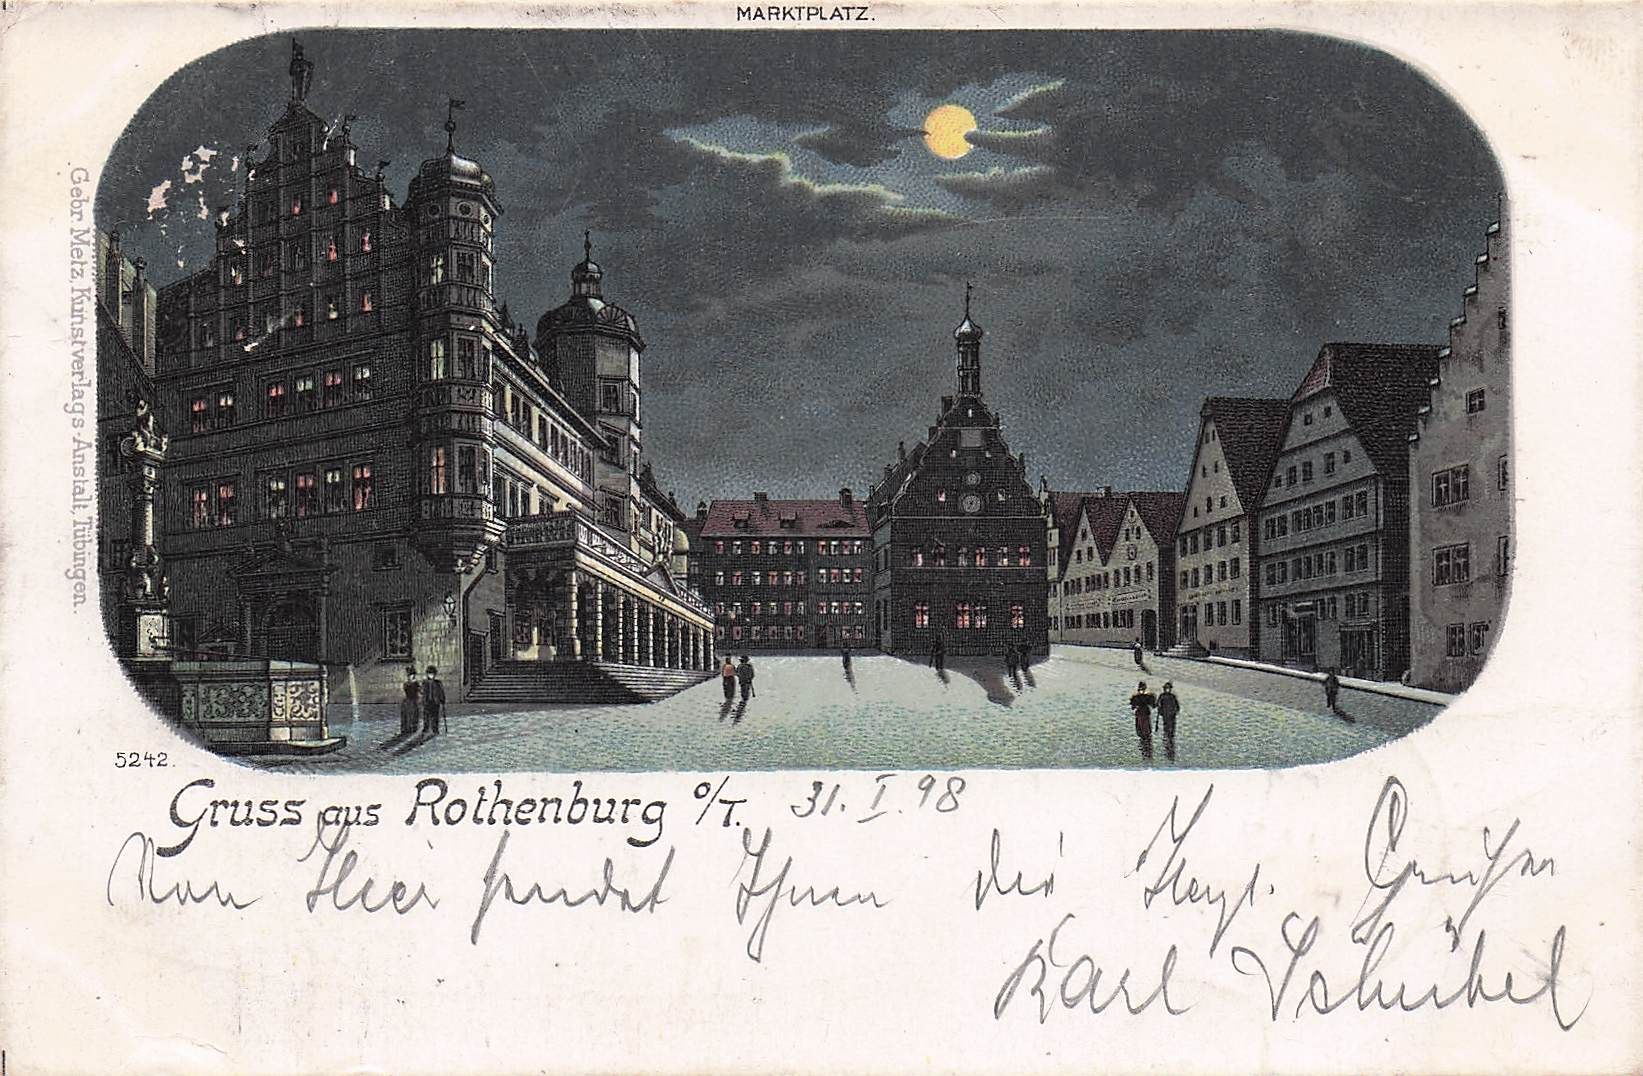 MARKTPLATZ.
Gebr. Metz, Kunstverlags-Anstalt, Tübingen.
5242.
Gruss aus Rothenburg o/T. 31. I. 98
Von Hier sendet Ihnen die
Karl